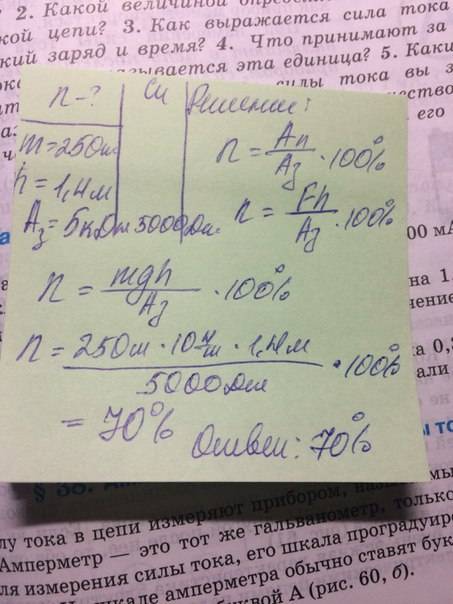 2. Какой величиной
кой цепи? 3. Как выражается сила тока
кий заряд и время? 4. Что принимают за
ывается эта единица? 5. Каки
силы тока вы з
n-? Си Решение:
m=250ш
h=1,4м
Aз=5кДж 5000Дж
n = Aп/Aз · 100%
n = Fh/Aз · 100%
n = mgh/Aз · 100%
n = 250ш · 10 н/ш · 1,4м / 5000Дж · 100%
= 70% Ответ: 70%
00 мА
на 1.
чение
ка 0,
али
лу тока в цепи измеряют прибором,
Амперметр — это тот же гальванометр, только
ля измерения силы тока, его шкала проградуиро
шкале амперметра обычно ставят бук
буквой А (рис. 60, б).